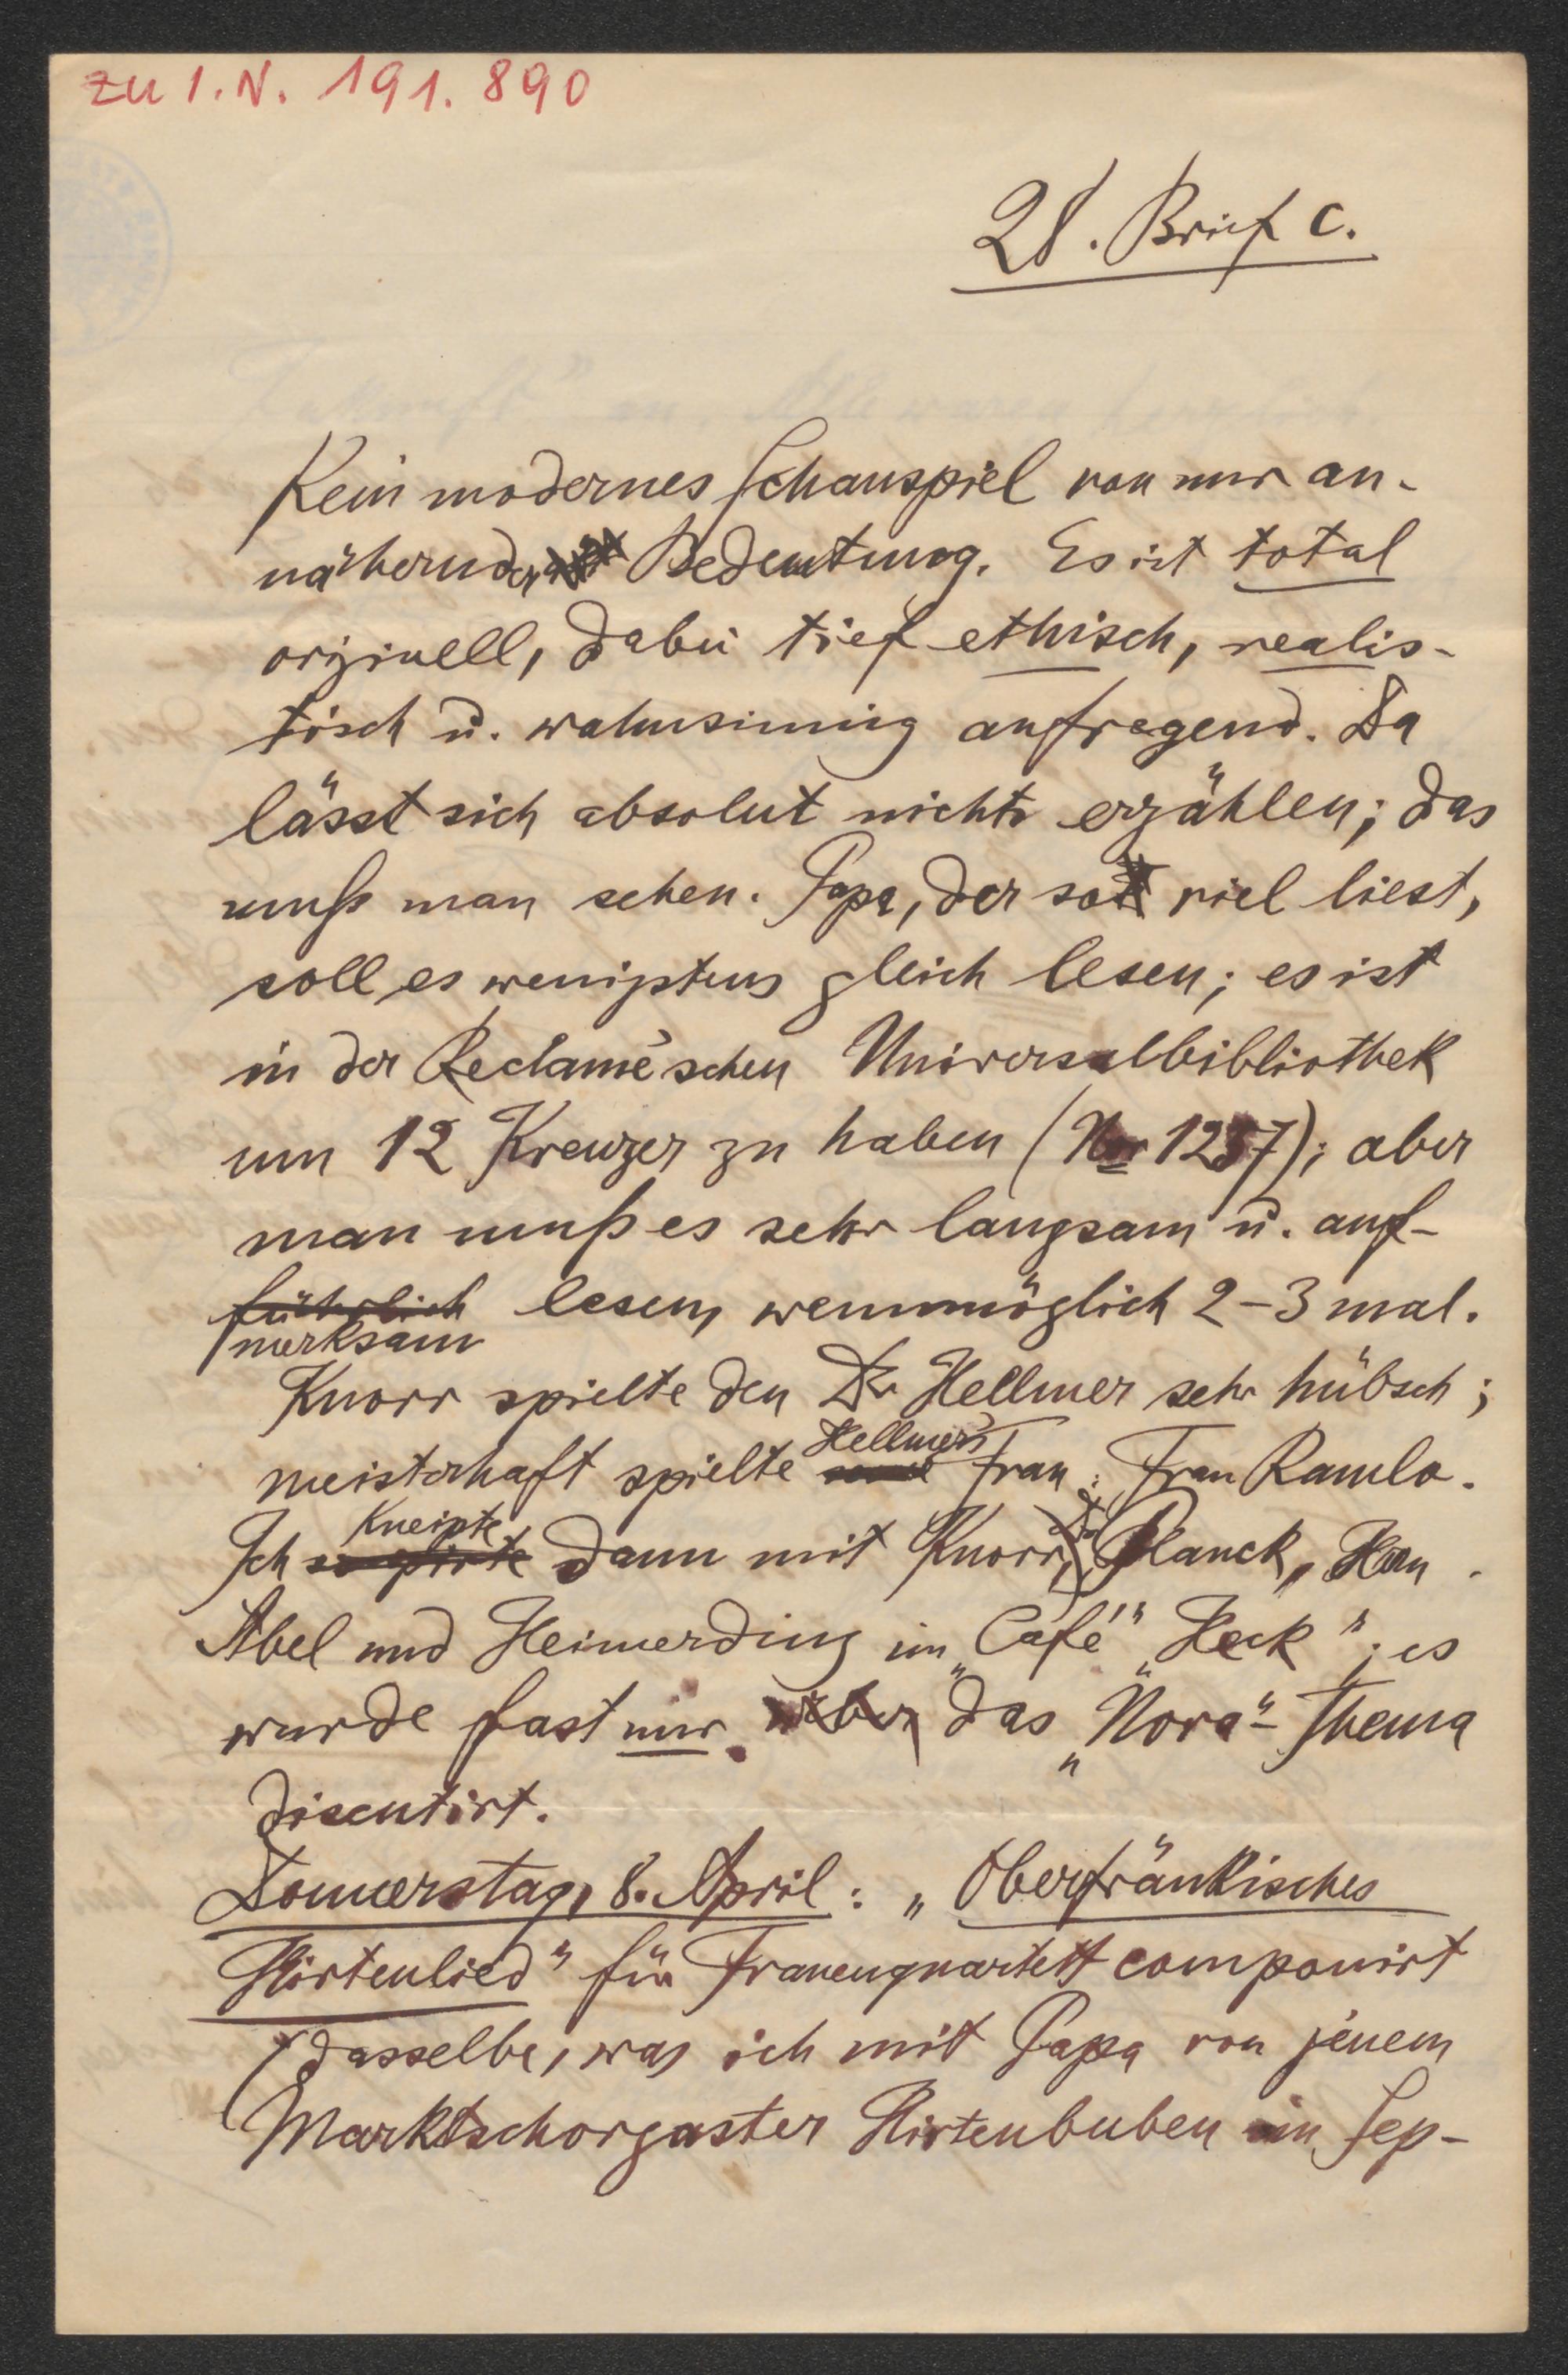 zu I.N. 191.890
28. Brief c.
Kein modernes Schauspiel von nur an-
nähernder Bedeutung. Es ist total
originell, dabei tief ethisch, realis-
tisch u. wahnsinnig aufregend. Da
lässt sich absolut nichts erzählen; das
muß man sehen. Papa, der so viel liest,
soll es wenigstens gleich lesen; es ist
in der Reclame'schen Universalbibliothek
um 12 Kreuzer zu haben (Nr 1257); aber
man muß es sehr langsam u. auf-
führlich lesen, wennmöglich 2-3 mal.
merksam
Knorr spielte den Dr Hellmer sehr hübsch;
meisterhaft spielte Hellmer's Frau: Frau Ramlo.
Ich kneipte dann mit Knorr, Planck,
Abel und Heimerding im „Café" „Heck"; es
wurde fast nur über das „Nora"-Thema
discutirt.
Donnerstag, 8. April: „Oberfränkisches
Hirtenlied" für Frauenquartett componirt
(dasselbe, was ich mit Papa von jenem
Marktschorgaster Hirtenbuben im Sep-